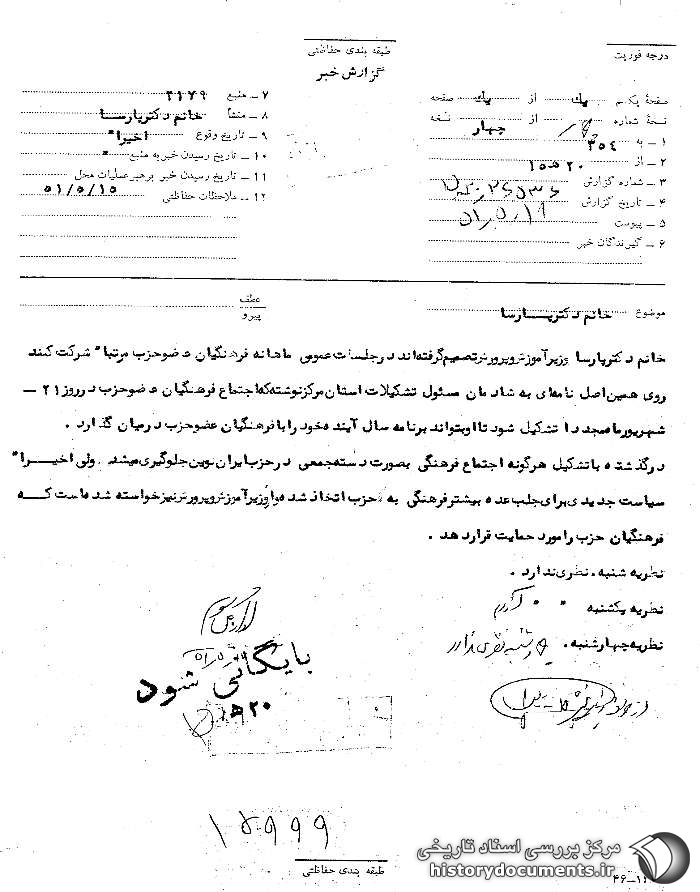 درجه فوریت
طبقه بندی حفاظتی
گزارش خبر
صفحهٔ یکم یک از یک صفحه
نسخهٔ شماره از چهار نسخه
۱ – به ۳۵۴
۲ – از ۲۰ ه‍ ۱۵
۳ – شماره گزارش
۴ – تاریخ گزارش
۵ – پیوست
۶ – گیرندگان خبر
۷ – منبع ۲۱۷۹
۸ – منشأ خانم دکتر پارسا
۹ – تاریخ وقوع اخیرا"
۱۰ – تاریخ رسیدن خبر به منبع "
۱۱ – تاریخ رسیدن خبر برهبر عملیات محل ۵۱/۵/۱۵
۱۲ – ملاحظات حفاظتی
موضوع خانم دکتر پارسا
عطف
پیرو
خانم دکتر پارسا وزیر آموزش و پرورش تصمیم گرفته اند در جلسات عمومی ماهانه فرهنگیان عضو حزب مرتبا" شرکت کنند
روی همین اصل نامه ای به شادمان مسئول تشکیلات استان مرکز نوشته که اجتماع فرهنگیان عضو حزب در روز ۲۱ –
شهریور ماه مجددا تشکیل شود تا او بتواند برنامه سال آینده خود را با فرهنگیان عضو حزب در میان گذارد .
در گذشته با تشکیل هرگونه اجتماع فرهنگی بصورت دسته جمعی در حزب ایران نوین جلوگیری میشد . ولی اخیرا"
سیاست جدیدی برای جلب عده بیشتر فرهنگی به حزب اتخاذ شده و از وزیر آموزش و پرورش نیز خواسته شده است که
فرهنگیان حزب را مورد حمایت قرار دهد .
نظریه شنبه . نظری ندارد .
نظریه یکشنبه " "
نظریه چهارشنبه . چهارشنبه نظری ندارد
بایگانی شود
۲۰ ه‍
۱۵۹۹۹
طبقه بندی حفاظتی
مرکز بررسی اسناد تاریخی
historydocuments.ir